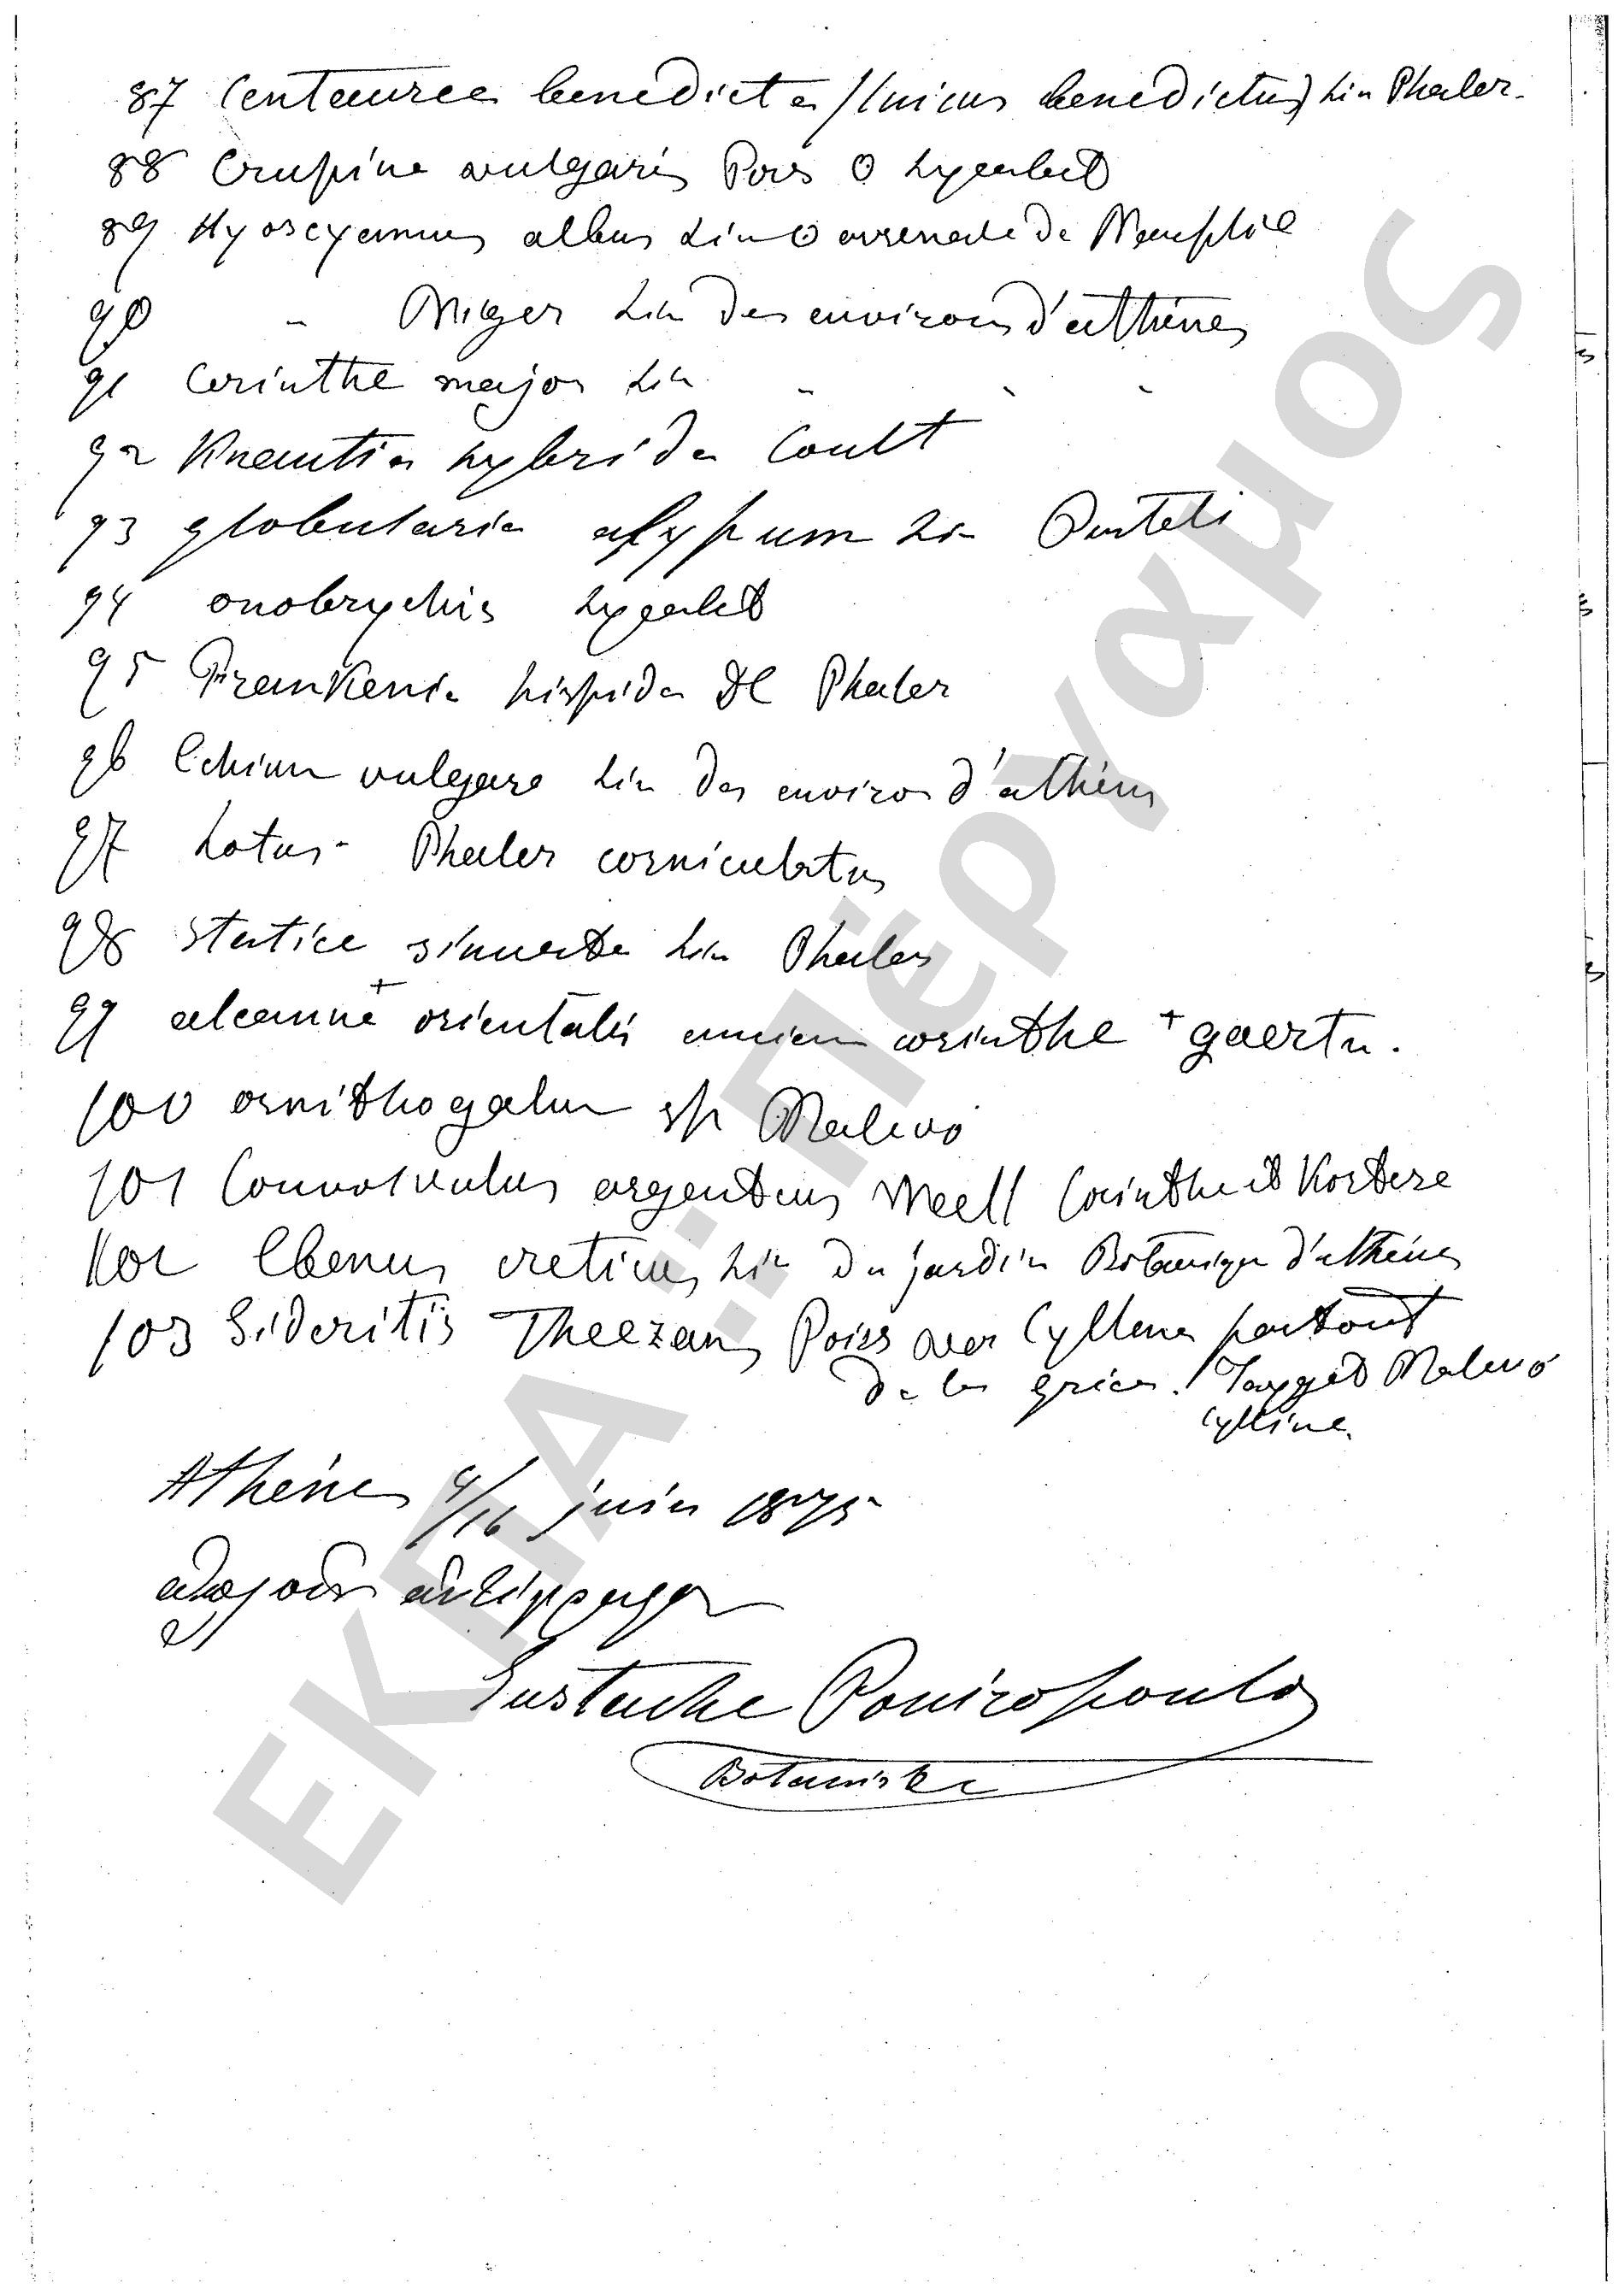 87 Centaurea benedicta (Cnicus benedictus) Lin Phaler.
88 Crupina vulgaris Pers ʘ Lycabet
89 Hyoscyamus albus Lin ʘ arsenale de Nauplie
90 " Niger Lin des environs d'athènes
91 Cerinthe major Lin " " "
92 Knautia hybrida Coult
93 globularia alypum Lin Penteli
94 onobrychis Lycabet
95 Frankenia hispida DC Phaler
96 Echium vulgare Lin des environ d'athèns
97 Lotus - Phaler corniculatus
98 Statice sinuata Lin Phaler
99 alcanna + orientalis ancien corinthe + gaertn.
100 ornithogalum sp Malevo
101 Convolvulus argenteus Corinthe et
102 Ebenus creticus Lin du jardin Botanique d'athènes
103 Sideritis Theezans Boiss Cyllena partout
de la grèce. Tayget Malevo
Cyllène.
Athènes 4/16 juin 1875
Eustache Poniropoulos
Botaniste
ΕΚΠΑ .:. Πέργαμος